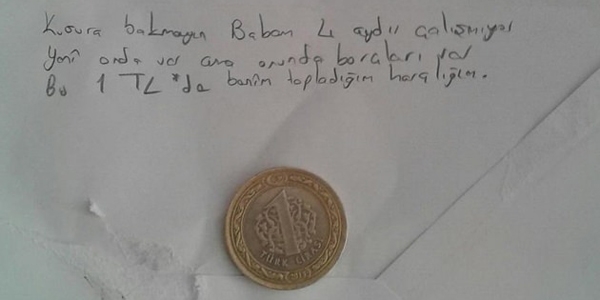 Kusura bakmayın Babam 4 aydır çalışmıyor
Yeni onda var ama onunda borçları var
Bu 1 TL *da benim topladığım harçlığım.
1
TÜRK LİRASI